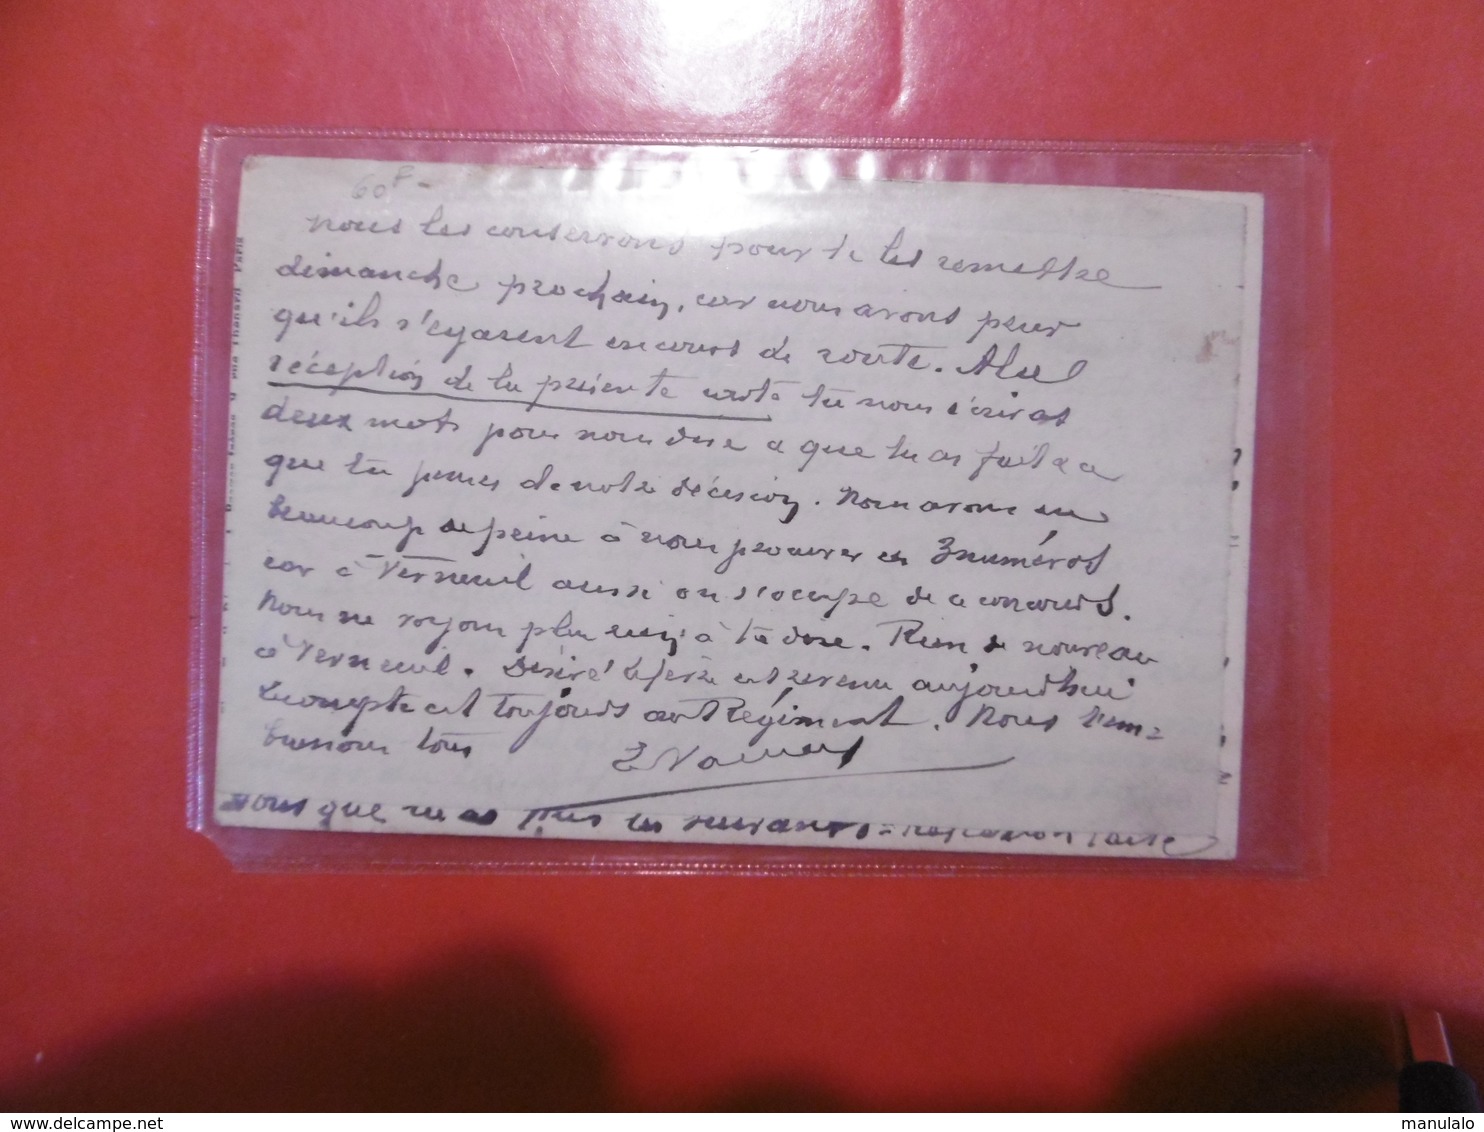 60F-
nous les conserrons pour te les remettre
dimanche prochain, car nous avons peur
qu'ils s'egarent en cours de route. A la
réception de la présente carte tu nous écriras
deux mots pour nous dire ce que tu as fait et ce
que tu penses de notre décision. Nous avons eu
beaucoup de peine à nous procurer ces 3 numéros
car à Verneuil aussi on s'occupe de ce concours.
Nous ne voyons plus rien à te dire. Rien de nouveau
à Verneuil. Désiré est revenu aujourd'hui
est toujours au Régiment. Nous t'em=
brassons tous
nous que tu as pris les suivants =
www.delcampe.net
manulalo